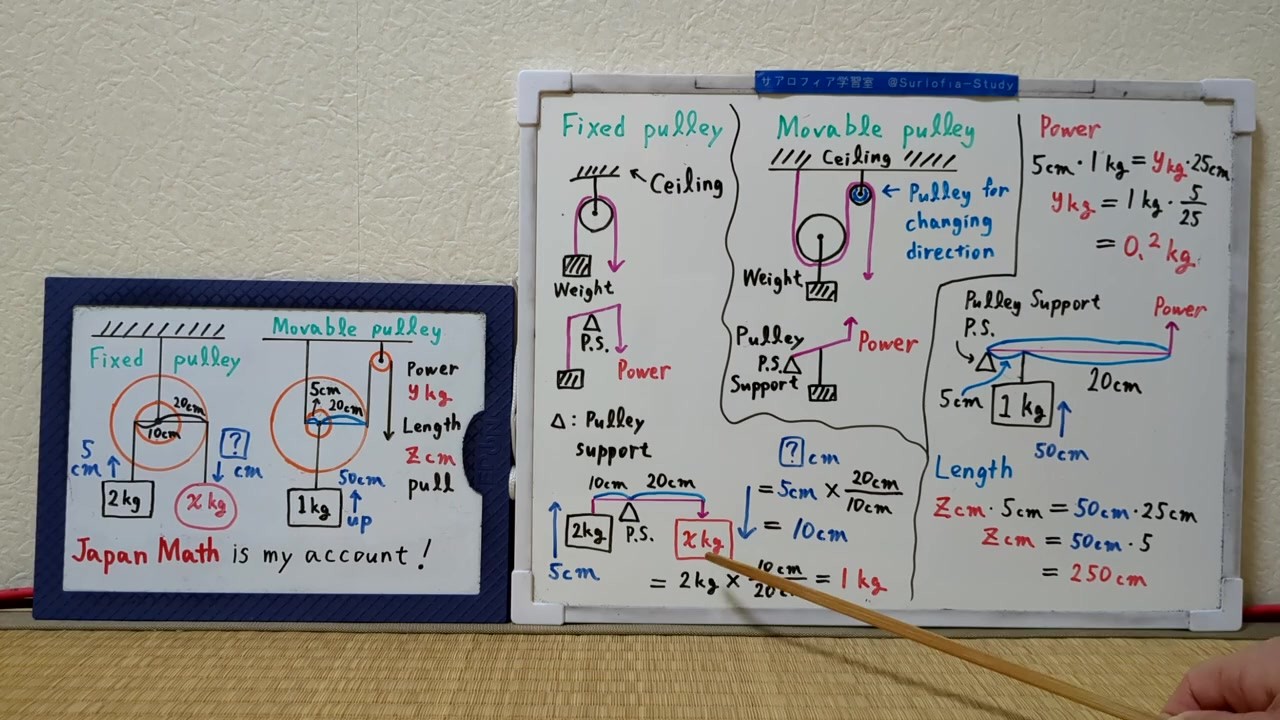 サアロフィア学習室 @Surlofia-Study
Fixed pulley
20cm
10cm
5
cm
2kg
?
cm
x kg
Movable pulley
5cm
20cm
1kg
50cm
up
Power
y kg
Length
Z cm
pull
Japan Math is my account!
Fixed pulley
Ceiling
Weight
P.S.
Power
△: Pulley
support
10cm 20cm
2kg P.S. x kg
5cm
= 2kg × 10cm/20cm = 1kg
? cm
= 5cm × 20cm/10cm
= 10cm
Movable pulley
Ceiling
Pulley for
changing
direction
Weight
Pulley
P.S.
Support
Power
Power
5cm・1kg = ykg・25cm
ykg = 1kg・5/25
= 0.2kg
Pulley Support
P.S.
Power
5cm
1kg
20cm
50cm
Length
Zcm・5cm = 50cm・25cm
Zcm = 50cm・5
= 250cm